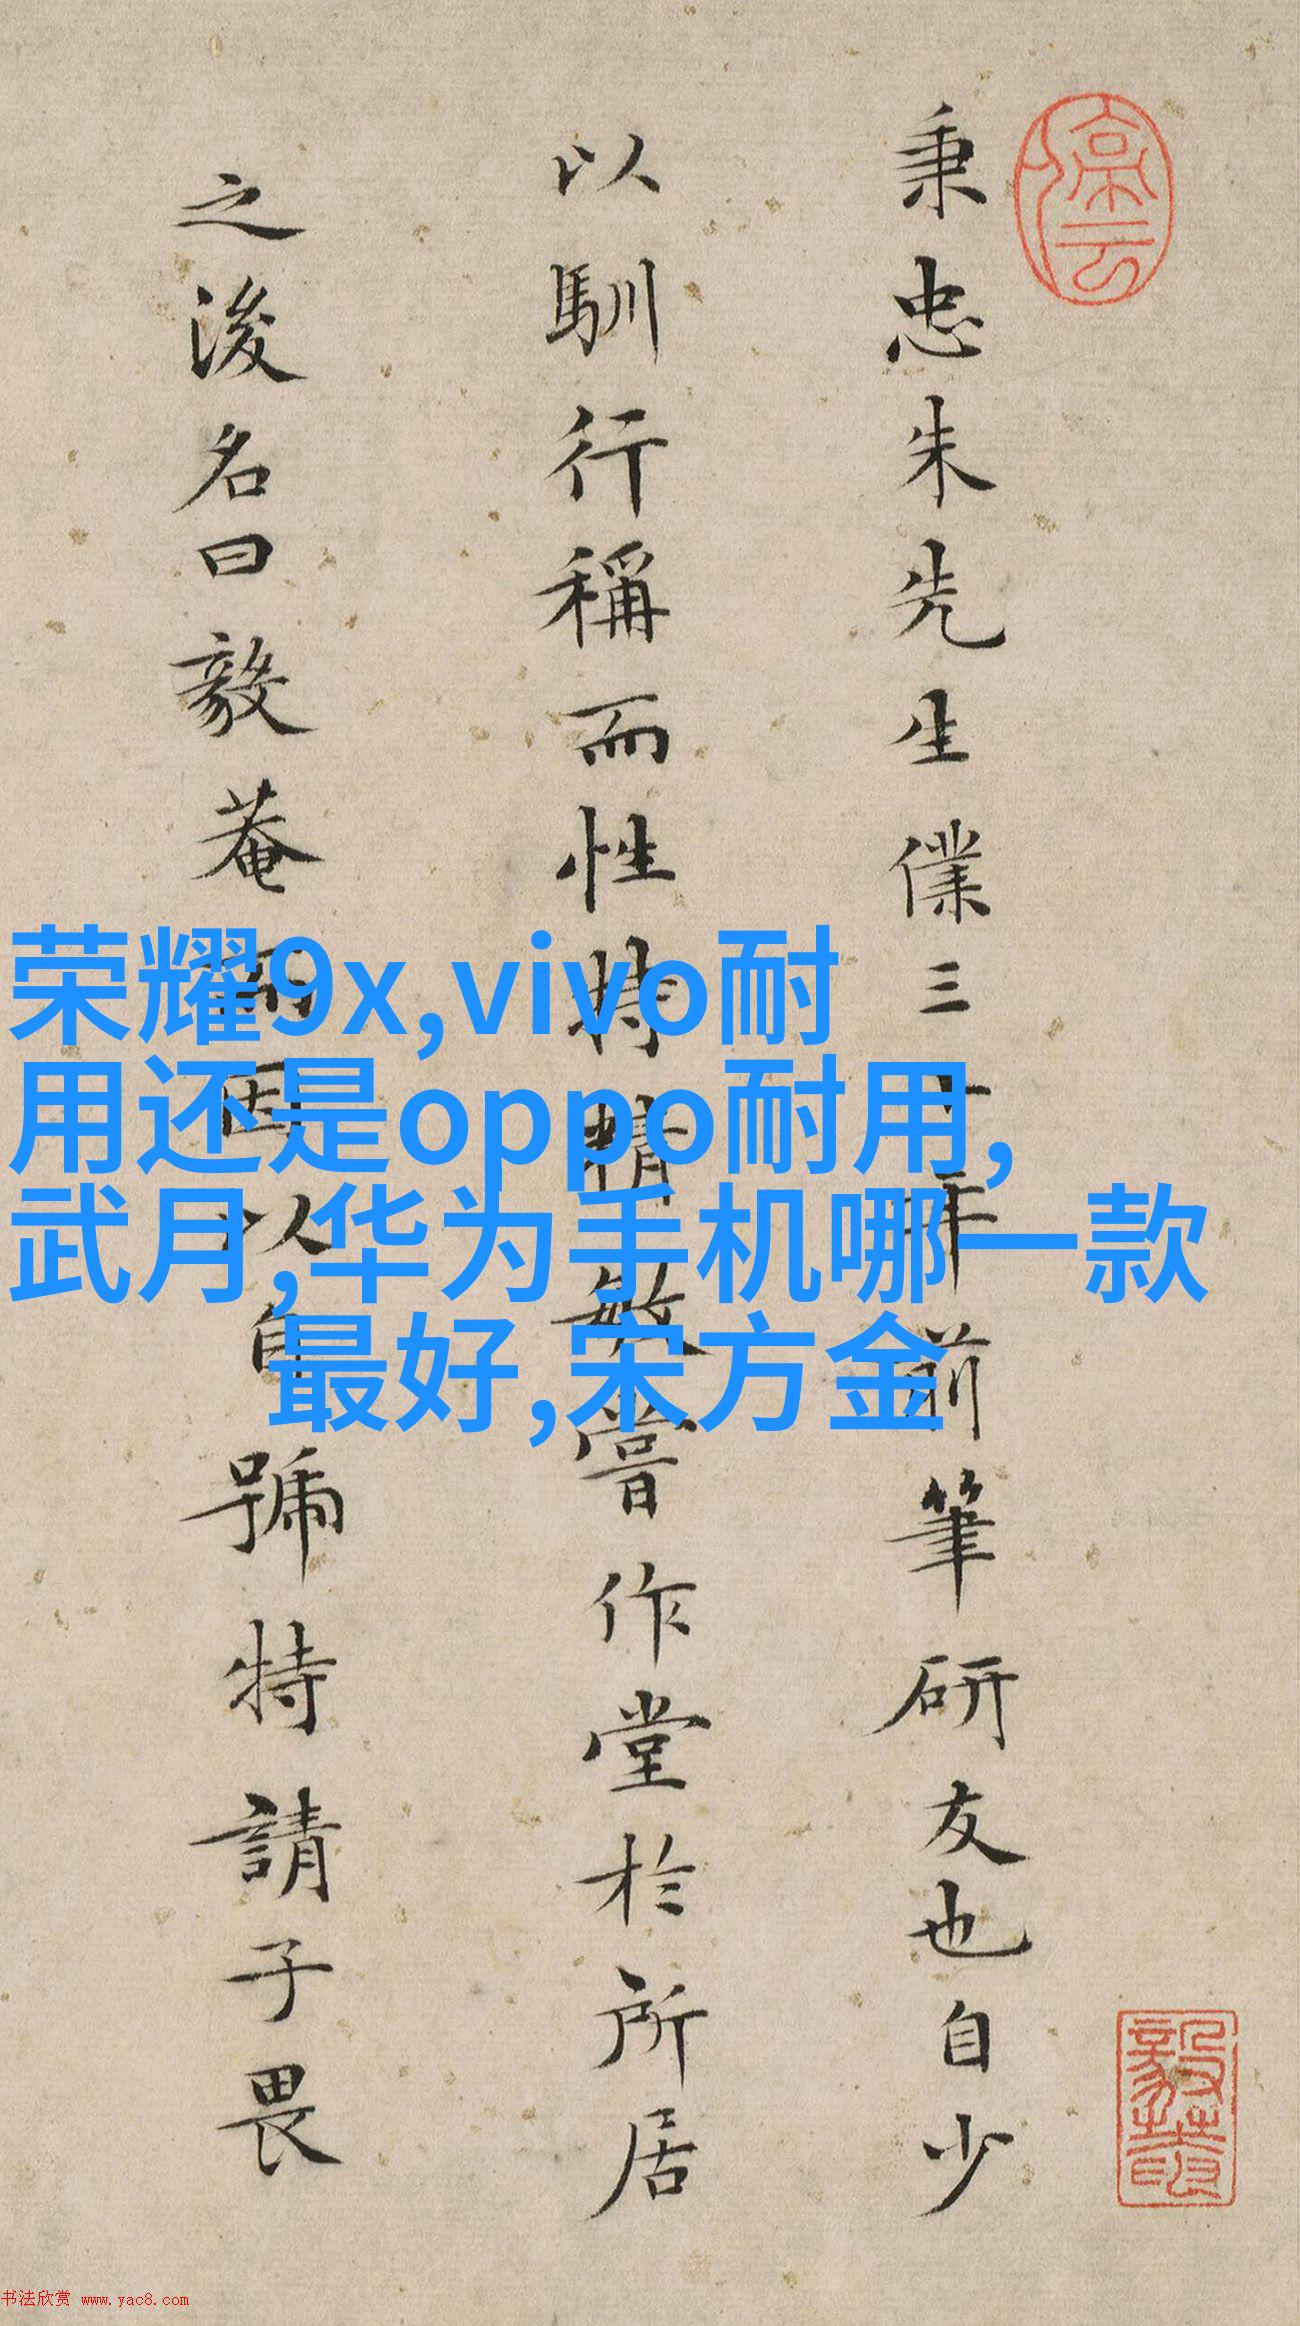 秉忠朱先生僕三十年前筆研友也自少
以馴行稱而性特精敏嘗作堂於所居
之後名曰毅菴而因以自號特請子畏
荣耀9x,vivo耐
用还是oppo耐用,
武月,华为手机哪一款
最好,宋方金
书法欣赏 www.yac8.com